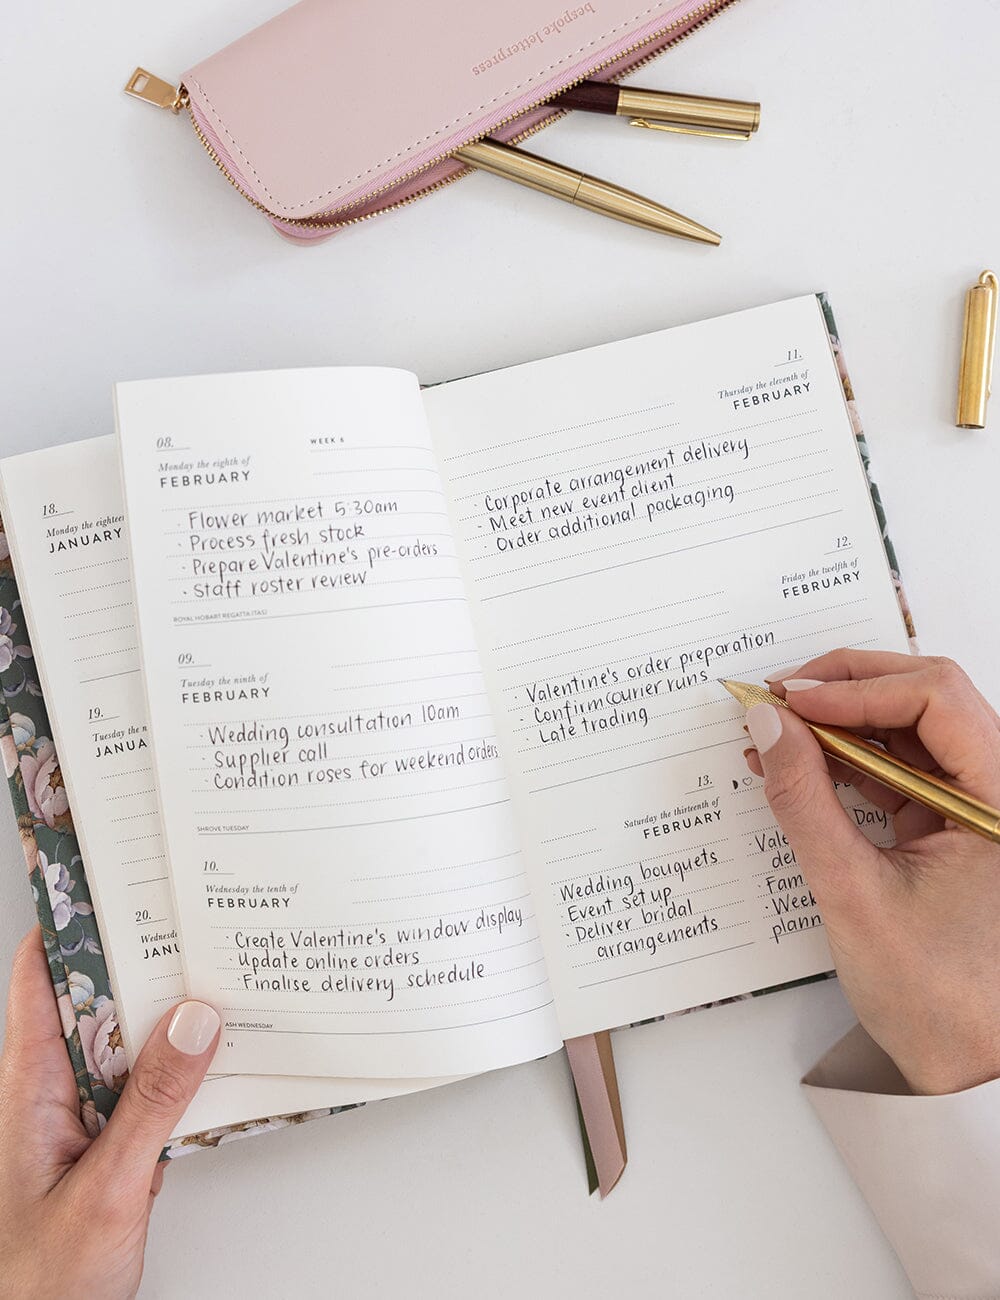 bespoke letterpress
18.
Monday the
JANUARY
19.
Tuesday the
20.
08.
WEEK 6
Monday the eighth of
FEBRUARY
· Flower market 5:30am
· Process fresh stock
· Prepare Valentine's pre-orders
· Staff roster review
ROYAL HOBART REGATTA (TAS)
09.
Tuesday the ninth of
FEBRUARY
· Wedding consultation 10am
· Supplier call
· Condition roses for weekend orders
SHROVE TUESDAY
10.
Wednesday the tenth of
FEBRUARY
· Create Valentine's window display
· Update online orders
· Finalise delivery schedule
ASH WEDNESDAY
11
11.
Thursday the eleventh of
FEBRUARY
· Corporate arrangement delivery
· Meet new event client
· Order additional packaging
12.
Friday the twelfth of
FEBRUARY
· Valentine's order preparation
· Confirm courier runs
· Late trading
13.
Saturday the thirteenth of
FEBRUARY
· Wedding bouquets
· Event set up
· Deliver bridal
arrangements
Day